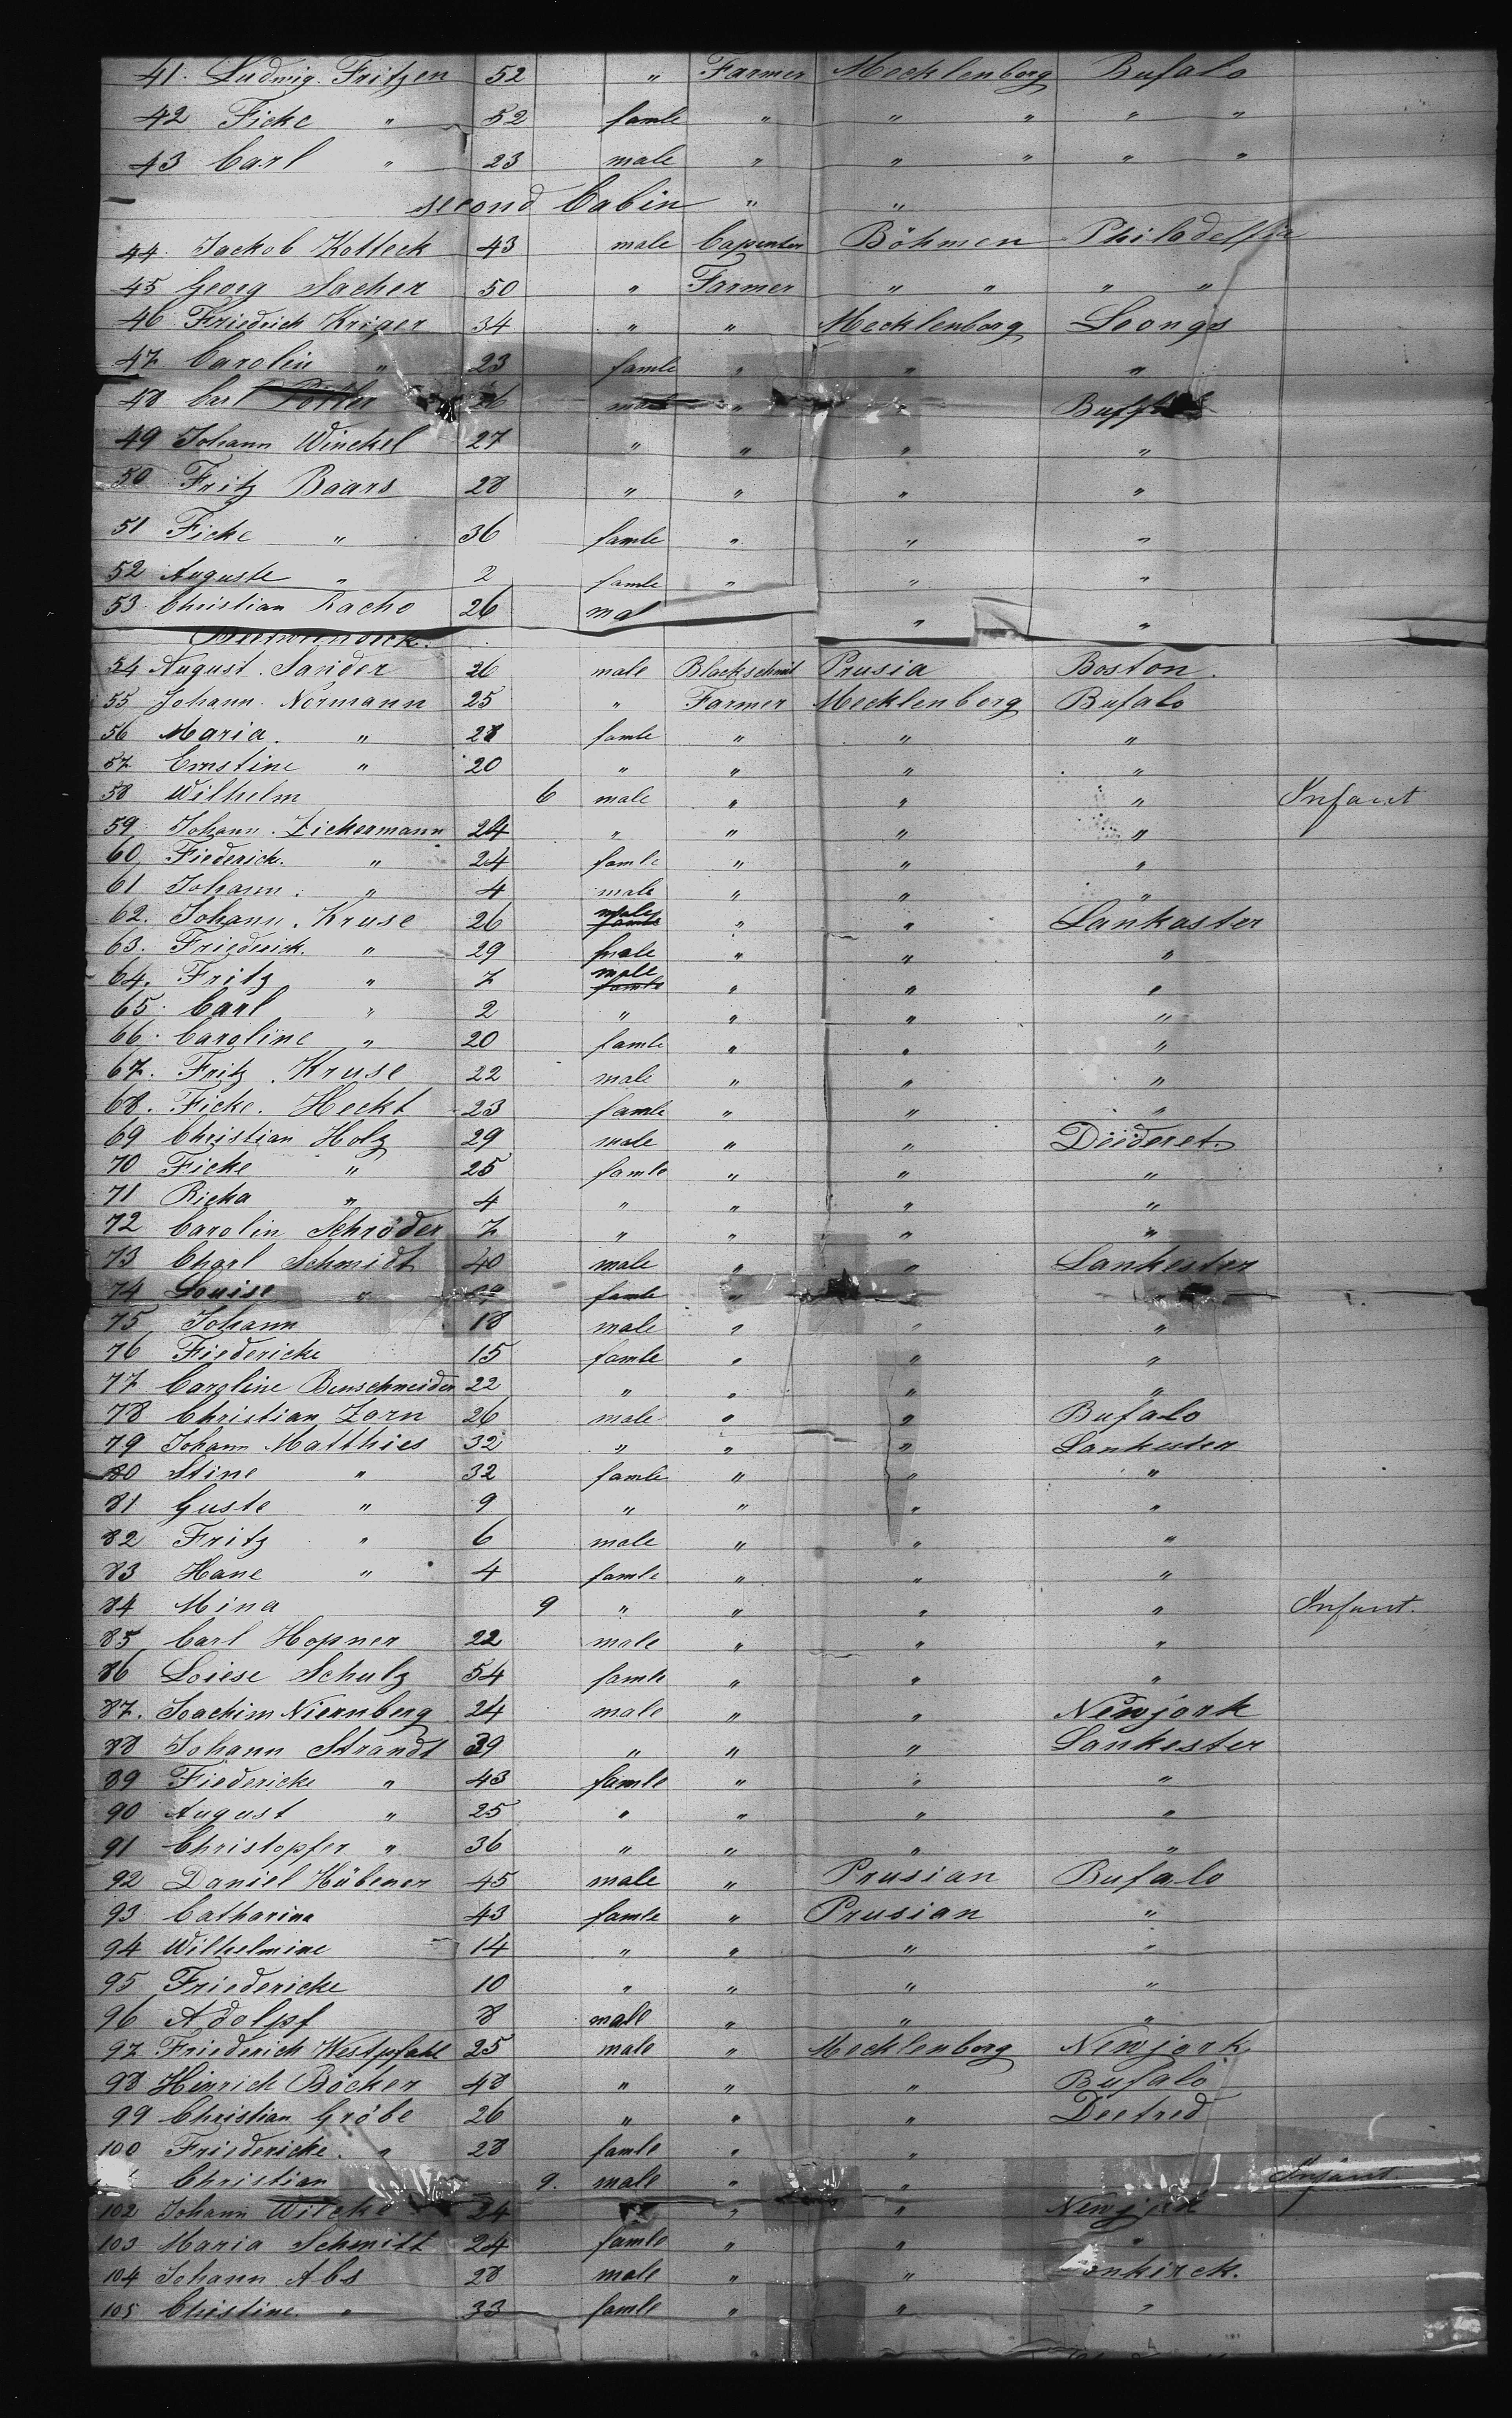 41. Ludwig Fritzen 52 " Farmer Mecklenborg Bufalo
42 Ficke " 52 famle " " " " "
43 Carl " 23 male " " " " "
second Cabin " "
44. Jackob Kolleck 43 male Capenter Böhmen Philadelfia
45 Georg Sacher 50 " Farmer " " " "
46 Friedrich Kriger 34 " " Mecklenborg Leongs
47 Carolin " 23 famle " " "
48 Carl Potler 26 male "
49 Johann Winckel 27 " " " "
50 Fritz Baars 28 " " " "
51 Ficke " 36 famle " " "
52 Auguste " 2 famle " " "
53. Christian Racho 26 mal " "
Betweendeck.
54 August Sander 26 male Blackschmit Prusia Boston.
55 Johann Normann 25 " Farmer Mecklenborg Bufalo
56 Maria. " 28 famle " " "
57. Ernstine " 20 " " " "
58 Wilhelm 6 male " " " Infant
59. Johann. Zickermann 24 " " " "
60 Fiederick. " 24 famle " " "
61 Johann. " 4 male " " "
62. Johann. Kruse 26 male " " Lankaster
63. Friederick. " 29 fmale " " "
64. Fritz " 7 male " " "
65. Carl " 2 " " " "
66. Caroline " 20 famle " " "
67. Fritz. Kruse 22 male " " "
68. Ficke. Heckt 23 famle " " "
69 Christian Holz 29 male " " Deideret.
70 Ficke " 25 famle " " "
71 Ricka " 4 " " " "
72 Carolin Schröder 7 " " " "
73 Charl Schmidt 40 male " " Lankester
74 Louise " famle "
75 Johann 18 male " " "
76 Fiedericke 15 famle " " "
77 Caroline Benschneider 22 " " " "
78 Christian Zorn 26 male " " Bufalo
79 Johann Matthies 32 " " " Lankester
80 Stine " 32 famle " " "
81 Guste " 9 " " " "
82 Fritz " 6 male " " "
83 Hane " 4 famle " " "
84 Mina 9 " " " " Infant.
85 Carl Hopner 22 male " " "
86 Loiese Schulz 54 famle " " "
87. Joachim Niernberg 24 male " " Newjork
88 Johann Strandt 39 " " " Lankester
89 Fiedericke " 43 famle " " "
90 August " 25 " " " "
91 Christopfer " 36 " " " "
92 Daniel Hübener 45 male " Prusian Bufalo
93 Catharina 43 famle " Prusian "
94 Wilhelmine 14 " " " "
95 Friedericke 10 " " " "
96 Adolpf 8 male " " "
97 Friederich Westpfahl 25 male " Mecklenborg Newjork
98 Hinrich Böcker 48 " " " Bufalo
99 Christian Gröbe 26 " " " Deetred
100 Friedericke. " 28 famle " "
Christian 9. male " " Infant.
102 Johann Wilcke 24 " " Newjork
103 Maria Schmitt 24 famle " " "
104 Johann Abs 28 male " " onkirck.
105 Christine. " 33 famle " " "